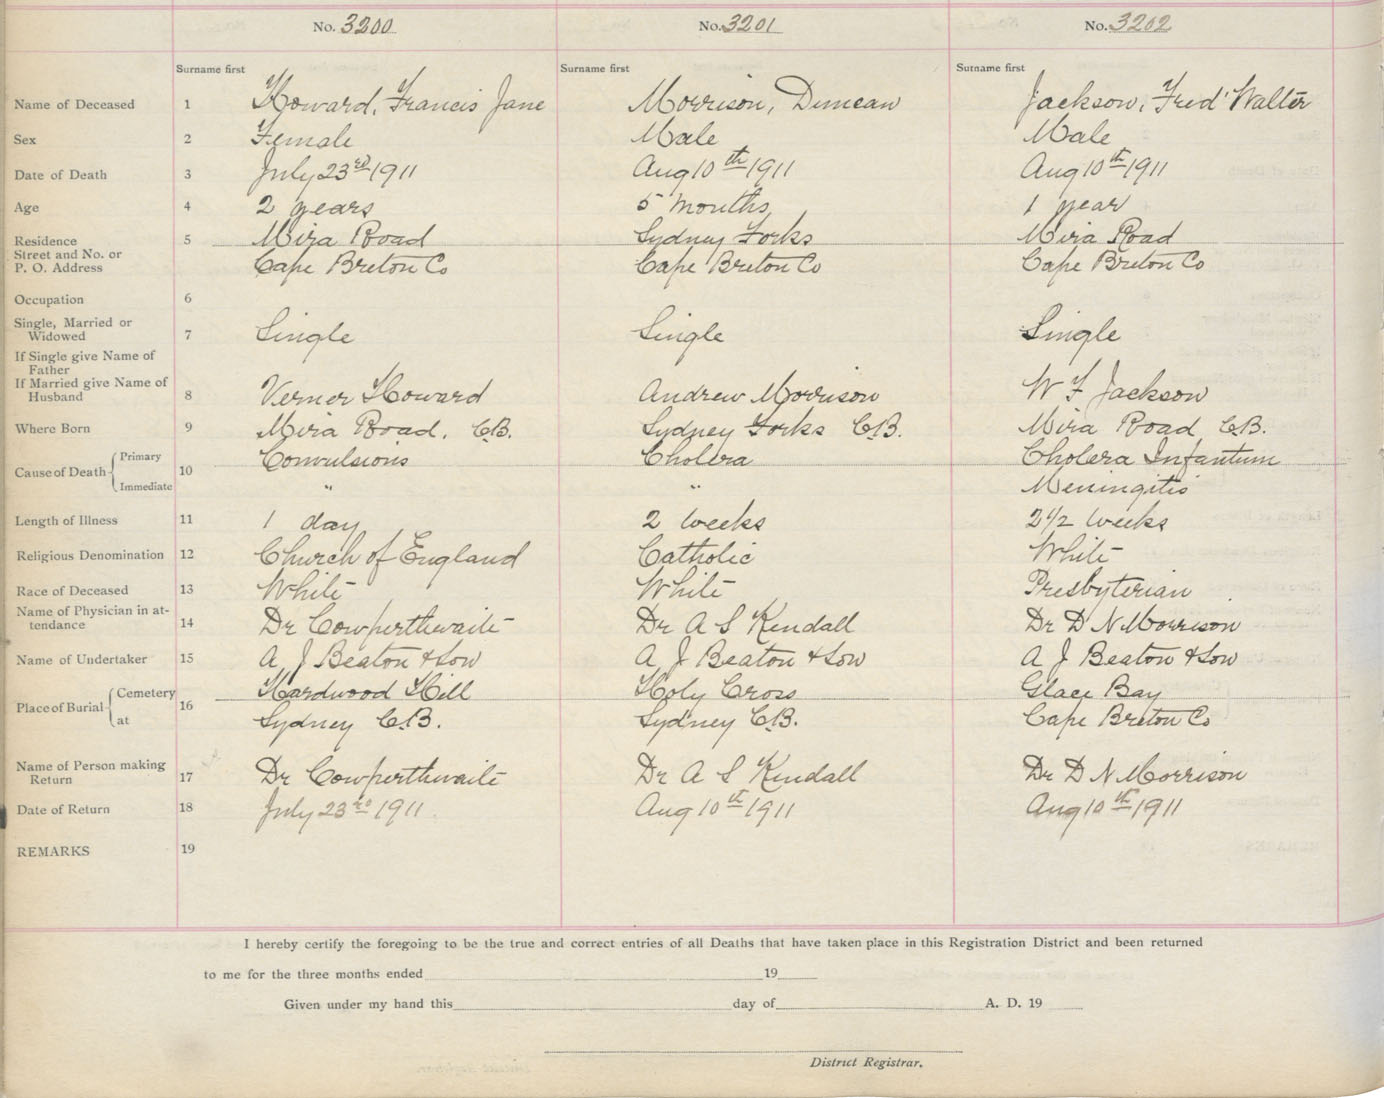 No. 3200 No. 3201 No. 3202
Surname first Surname first Surname first
Name of Deceased 1 Howard, Francis Jane Morrison, Duncan Jackson, Fred' Walter
Sex 2 Female Male Male
Date of Death 3 July 23rd 1911 Aug 10th 1911 Aug 10th 1911
Age 4 2 years 5 months 1 year
Residence 5 Mira Road Sydney Forks Mira Road
Street and No. or
P. O. Address Cape Breton Co Cape Breton Co Cape Breton Co
Occupation 6
Single, Married or
Widowed 7 Single Single Single
If Single give Name of
Father
If Married give Name of
Husband 8 Verner Howard Andrew Morrison W F Jackson
Where Born 9 Mira Road, C.B. Sydney Forks C.B. Mira Road C.B.
Cause of Death Primary 10 Convulsions Cholera Cholera Infantum
Immediate " " Meningitis
Length of Illness 11 1 day 2 weeks 2 1/2 weeks
Religious Denomination 12 Church of England Catholic White
Race of Deceased 13 White White Presbyterian
Name of Physician in at-
tendance 14 Dr Cowperthwaite Dr A S Kendall Dr D N Morrison
Name of Undertaker 15 A J Beaton & Son A J Beaton & Son A J Beaton & Son
Place of Burial Cemetery 16 Hardwood Hill Holy Cross Glace Bay
at Sydney C.B. Sydney C.B. Cape Breton Co
Name of Person making
Return 17 Dr Cowperthwaite Dr A S Kendall Dr D N Morrison
Date of Return 18 July 23rd 1911 Aug 10th 1911 Aug 10th 1911
REMARKS 19
I hereby certify the foregoing to be the true and correct entries of all Deaths that have taken place in this Registration District and been returned
to me for the three months ended 19
Given under my hand this day of A. D. 19
District Registrar.